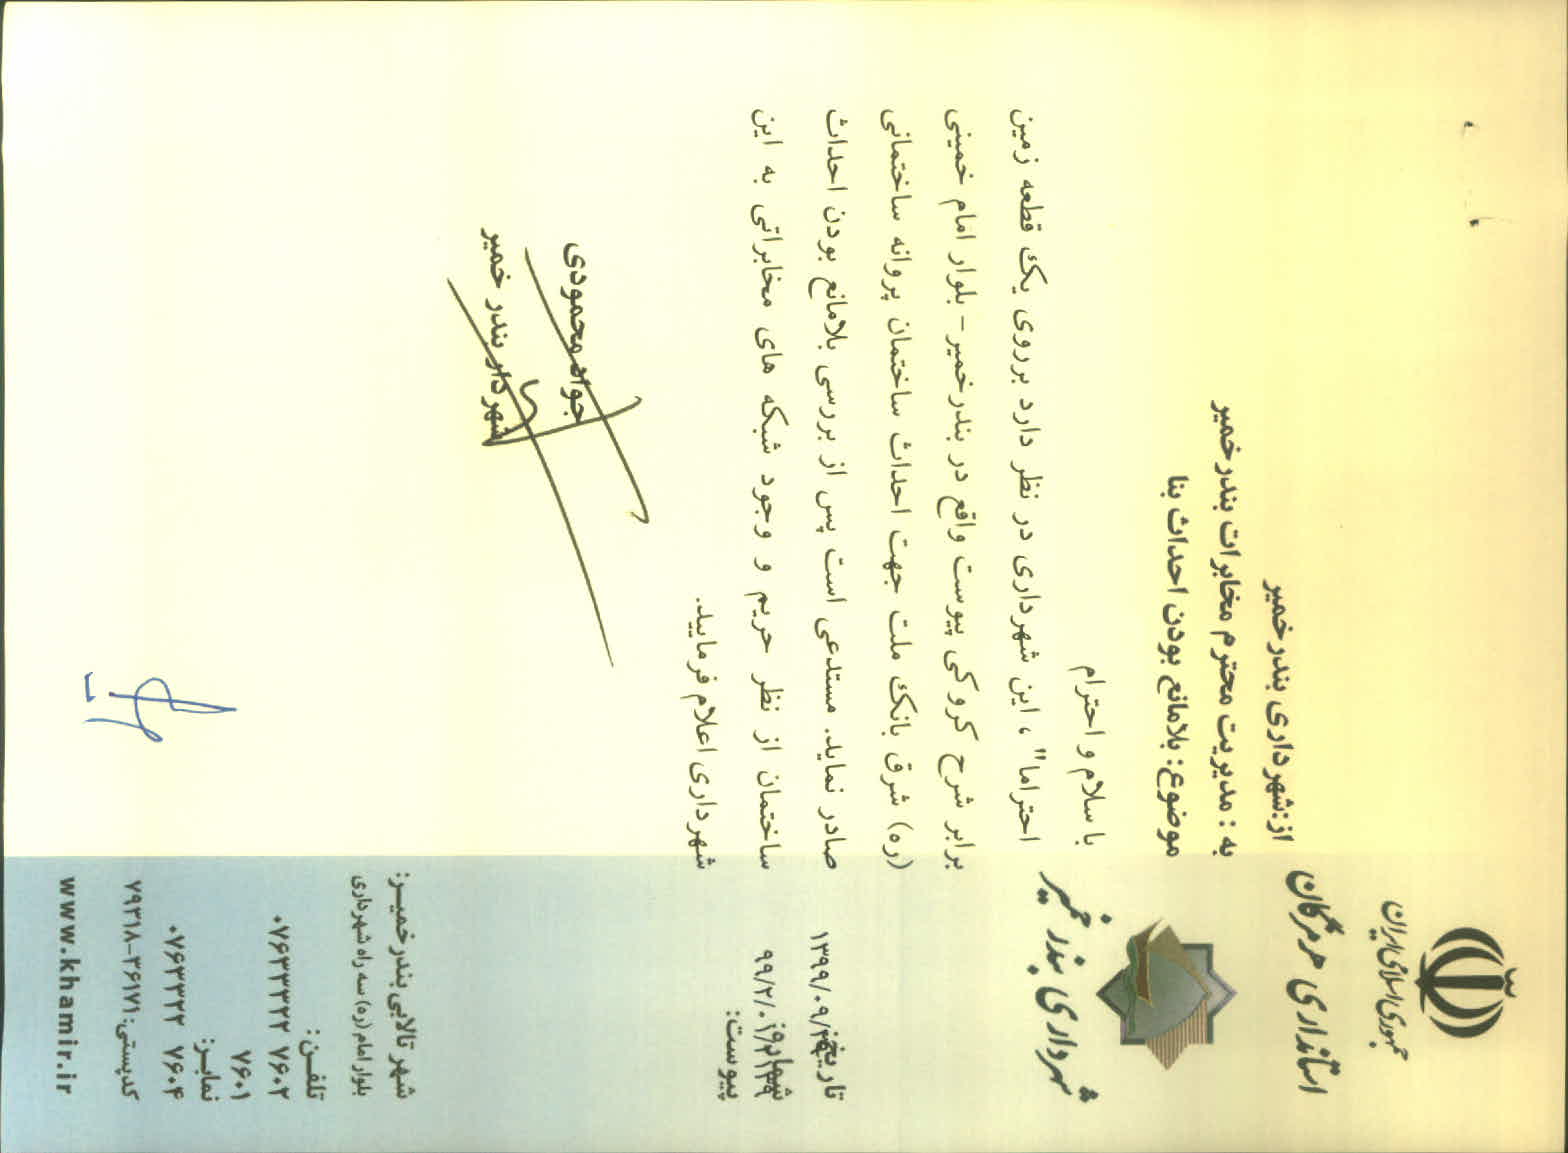 جمهوری اسلامی ایران
استانداری هرمزگان
شهرداری بندر خمیر
از:شهرداری بندرخمیر
به : مدیریت محترم مخابرات بندرخمیر
موضوع: بلامانع بودن احداث بنا
با سلام و احترام
احتراما" ، این شهرداری در نظر دارد برروی یک قطعه زمین
برابر شرح کروکی پیوست واقع در بندرخمیر- بلوار امام خمینی
(ره) شرق بانک ملت جهت احداث ساختمان پروانه ساختمانی
صادر نماید. مستدعی است پس از بررسی بلامانع بودن احداث
ساختمان از نظر حریم و وجود شبکه های مخابراتی به این
شهرداری اعلام فرمایید.
جواد محمودی
شهردار بندر خمیر
تاریخ:
شماره:
پیوست:
شهر تالابی بندرخمیـر:
بلوار امام (ره) سه راه شهرداری
تلفـن:
۰۷۶۳۳۳۲۲ ۷۶۰۲
۷۶۰۱
نمابـر:
۰۷۶۳۳۳۲۲ ۷۶۰۴
کدپستی: ۳۶۱۷۱-۷۹۳۱۸
www.khamir.ir